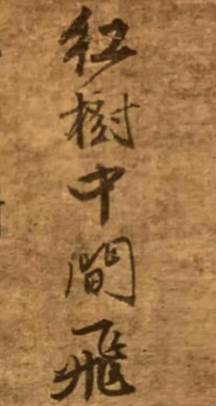 紅樹中間飛